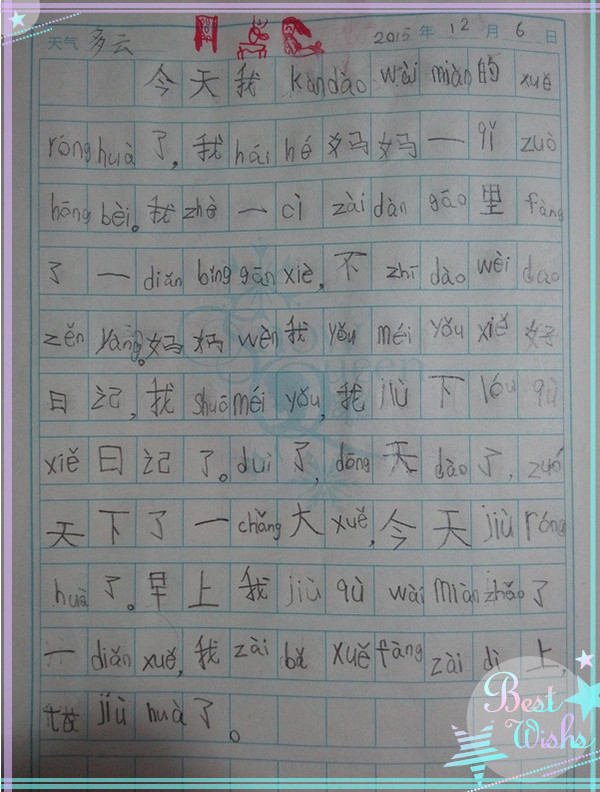 天气 多云 2015年 12月 6日
今天我 kàn dào wài miàn 的 xuě
róng huà 了，我 hái hé 妈妈一 qǐ zuò
hōng bèi。我 zhè 一 cì zài dàn gāo 里 fàng
了一 diǎn bǐng gān xiè，不 zhī dào wèi dao
zěn yàng。妈妈 wèn 我 yǒu méi yǒu xiě 好
日记，我 shuō méi yǒu，我 jiù 下 lóu qù
xiě 日记了。duì 了，dōng 天 dào 了，zuó
天下了一 chǎng 大 xuě，今天 jiù róng
huà 了。早上我 jiù qù wài miàn zhǎo 了
一 diǎn xuě，我 zài bǎ xuě fàng zài dì 上，
jiù huà 了。
Best
Wishs